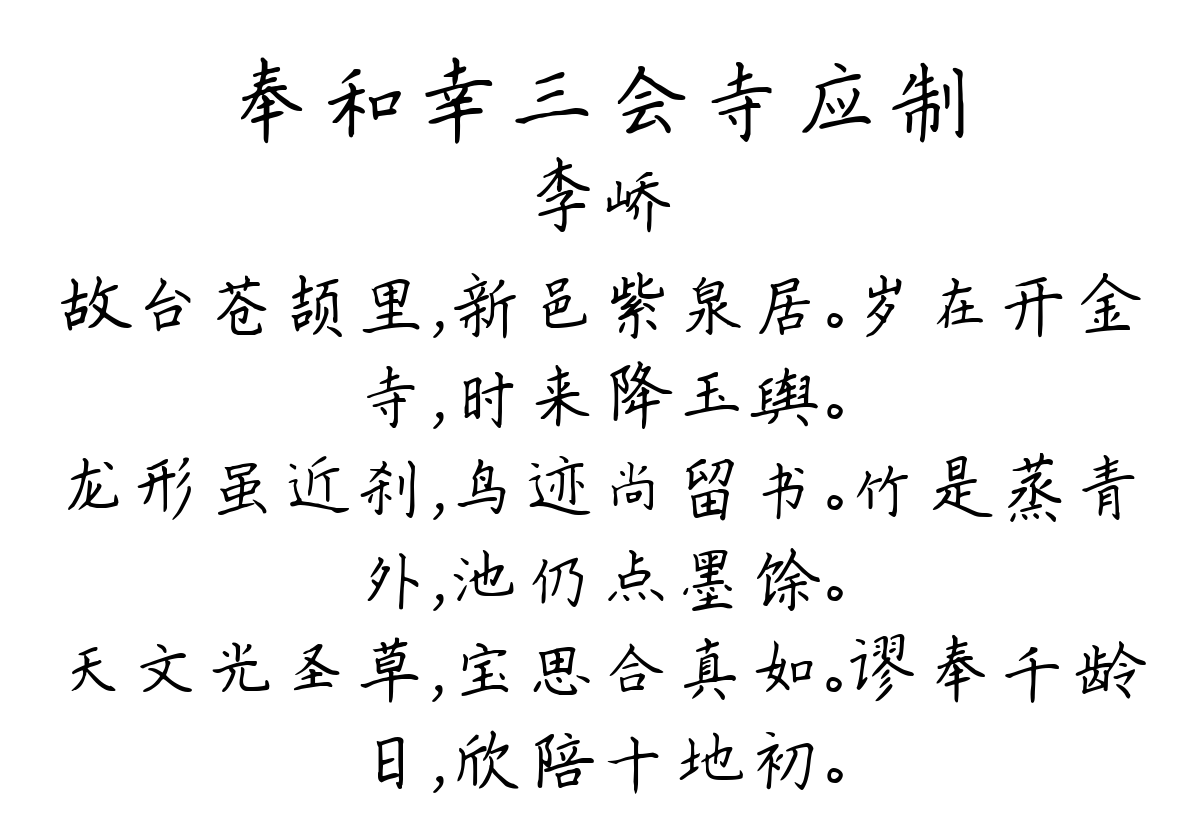 奉和幸三会寺应制
李峤
故台苍颉里,新邑紫泉居。岁在开金
寺,时来降玉舆。
龙形虽近刹,鸟迹尚留书。竹是蒸青
外,池仍点墨馀。
天文光圣草,宝思合真如。谬奉千龄
日,欣陪十地初。